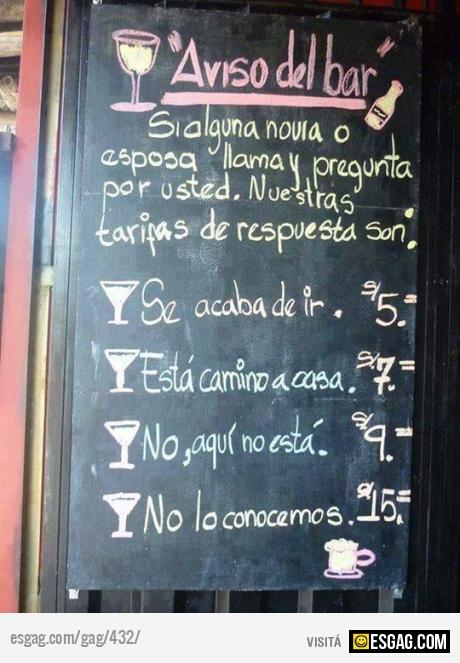 "Aviso del bar"
Si alguna novia o
esposa llama y pregunta
por usted. Nuestras
tarifas de respuesta son:
Se acaba de ir. S/5.=
Está camino a casa. S/.7.=
No, aquí no está. S/9.=
No lo conocemos. S/15.=
esgag.com/gag/432/ VISITÁ ESGAG.COM